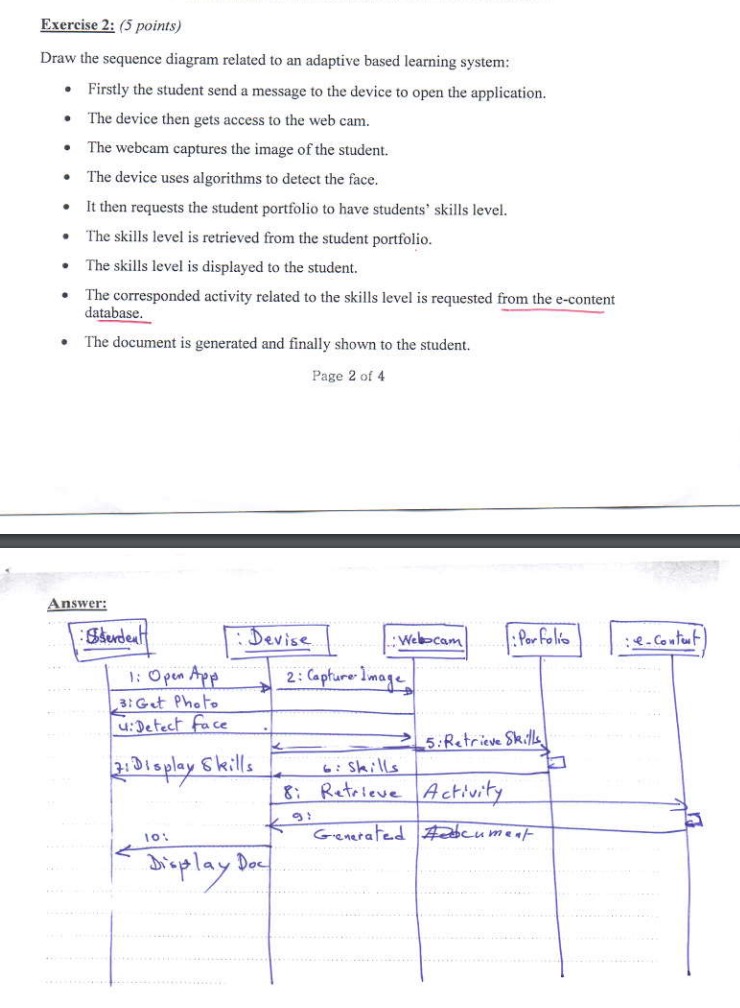 Exercise 2: (5 points)
Draw the sequence diagram related to an adaptive based learning system:
• Firstly the student send a message to the device to open the application.
• The device then gets access to the web cam.
• The webcam captures the image of the student.
• The device uses algorithms to detect the face.
• It then requests the student portfolio to have students' skills level.
• The skills level is retrieved from the student portfolio.
• The skills level is displayed to the student.
• The corresponded activity related to the skills level is requested from the e-content
database.
• The document is generated and finally shown to the student.
Page 2 of 4
Answer:
:Sterdent :Devise :Webcam :Porfolio :e-Contert
1: Open App 2: Capture Image
3: Get Photo
4: Detect face
5: Retrieve Skills
7: Display Skills 6: Skills
8: Retrieve Activity
9:
10: Generated document
Display Doc